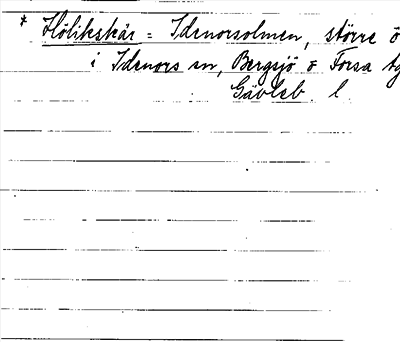 * Hölikskär = Idenorsolmen, större ö
i Idenors sn, Bergsjö o Forsa tg
Gävleb. l.